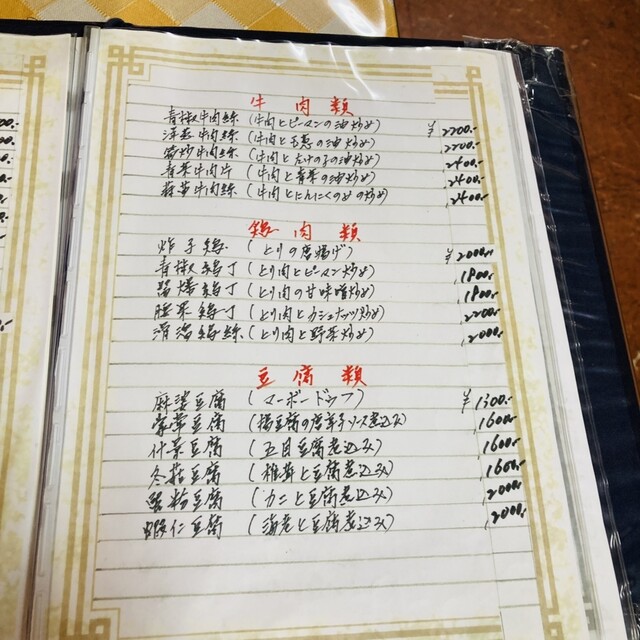 牛肉類
青椒牛肉絲(牛肉とピーマンの油炒め) ¥2200.-
洋葱牛肉絲(牛肉と玉葱の油炒め) 2200.-
筍炒牛肉絲(牛肉とたけの子の油炒め) 2400.-
青菜牛肉片(牛肉と青菜の油炒め) 2400.-
蒜苗牛肉絲(牛肉とにんにくのめの炒め) 2400.-
鶏肉類
炸子鶏(とりの唐揚げ) ¥2000.-
青椒鶏丁(とり肉とピーマン炒め) 1800.-
醤爆鶏丁(とり肉の甘味噌炒め) 1800.-
腰果鶏丁(とり肉とカシュナッツ炒め) 2200.-
滑溜鶏絲(とり肉と野菜炒め) 2000.-
豆腐類
麻婆豆腐(マーボードゥフ) ¥1300.-
家常豆腐(揚豆腐の唐辛子ソース煮込み) 1600.-
什景豆腐(五目豆腐煮込み) 1600.-
冬菇豆腐(椎茸と豆腐煮込み) 1600.-
蟹粉豆腐(カニと豆腐煮込み) 2000.-
蝦仁豆腐(海老と豆腐煮込み) 2000.-